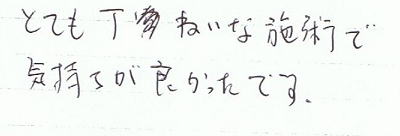 とても丁寧ねいな施術で
気持ちが良かったです。